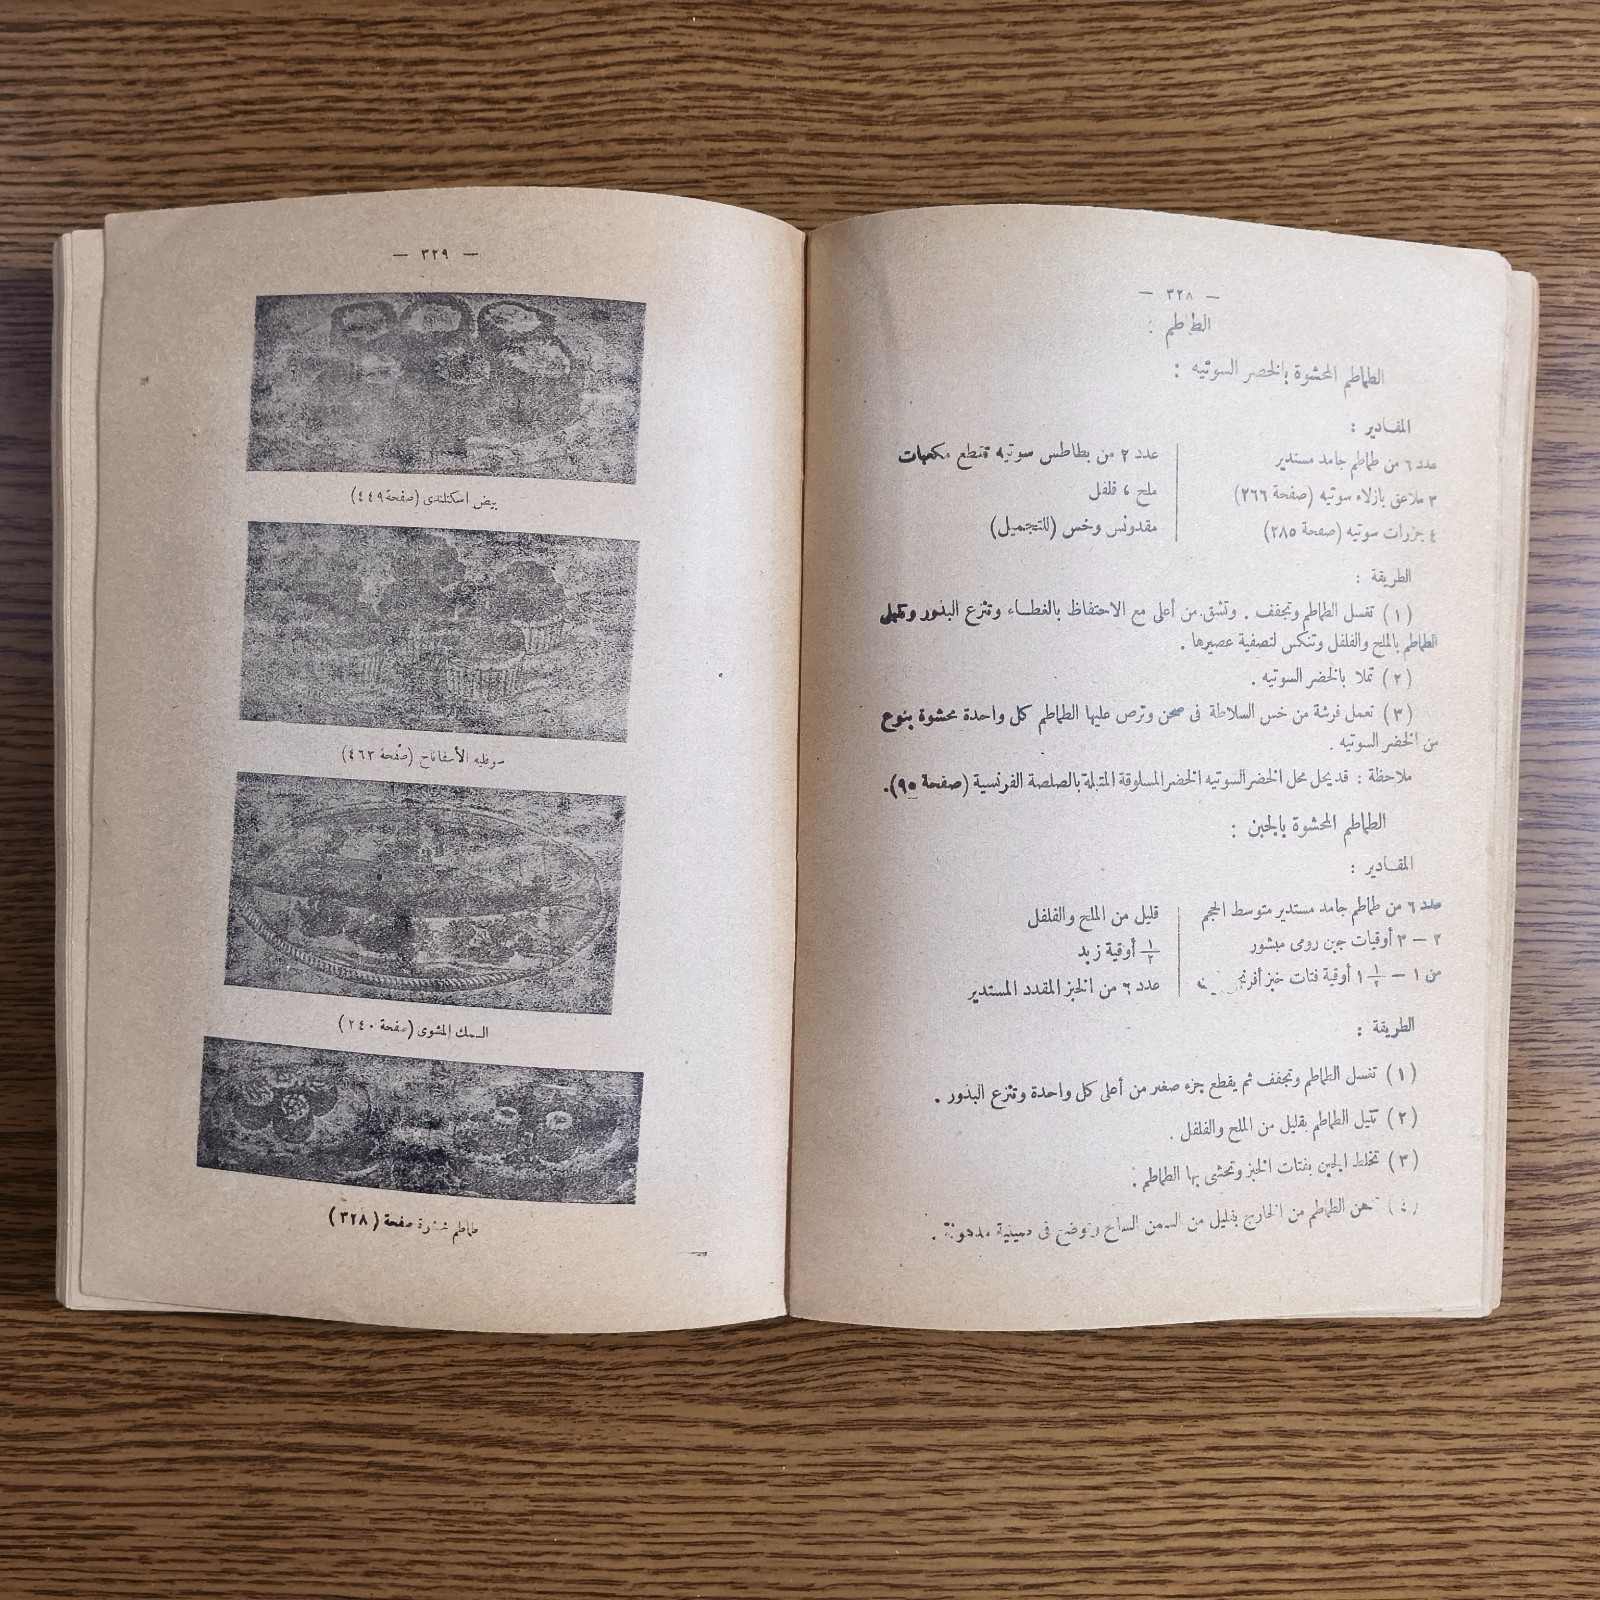 — ٣٢٨ —
الطماطم :
الطماطم المحشوة بالخضر السوتيه :
المقادير :
عدد ٦ من طماطم جامد مستدير
٣ ملاعق بازلاء سوتيه (صفحة ٢٦٦)
٤ جزرات سوتيه (صفحة ٢٨٥)
عدد ٢ من بطاطس سوتيه تقطع مكعبات
ملح ، فلفل
مقدونس وخس (للتجميل)
الطريقة :
(١) تغسل الطماطم وتجفف . وتشق من أعلى مع الاحتفاظ بالغطاء وتنزع البذور وتتبل
الطماطم بالملح والفلفل وتنكس لتصفية عصيرها .
(٢) تملا بالخضر السوتيه .
(٣) تعمل فرشة من خس السلاطة فى صحن وترص عليها الطماطم كل واحدة محشوة بنوع
من الخضر السوتيه .
ملاحظة : قد يحل محل الخضر السوتيه الخضر المسلوقة المتبلة بالصلصة الفرنسية (صفحة ٩٥).
الطماطم المحشوة بالجبن :
المقادير :
عدد ٦ من طماطم جامد مستدير متوسط الحجم
٢ — ٣ أوقيات جبن رومى مبشور
من ١ — ١ ١/٢ أوقية فتات خبز أفرنجى
قليل من الملح والفلفل
١/٢ أوقية زبد
عدد ٦ من الخبز المقدد المستدير
الطريقة :
(١) تغسل الطماطم وتجفف ثم يقطع جزء صغير من أعلى كل واحدة وتنزع البذور .
(٢) تتبل الطماطم بقليل من الملح والفلفل .
(٣) تخلط الجبن بفتات الخبز وتحشى بها الطماطم .
(٤) تدهن الطماطم من الخارج بقليل من السمن السائح وتوضع فى صينية مدهونة .
— ٣٢٩ —
بيض اسكتلندى (صفحة ٤٤٩)
سوفليه الأسفاناخ (صفحة ٤٦٣)
السمك المشوى (صفحة ٢٤٠)
طماطم محشوة صفحة (٣٢٨)